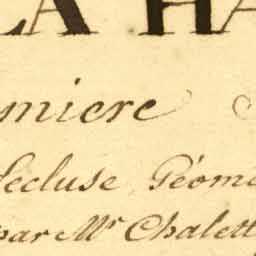 LA HA
miere
lecluse Géome
par Mr Chalett